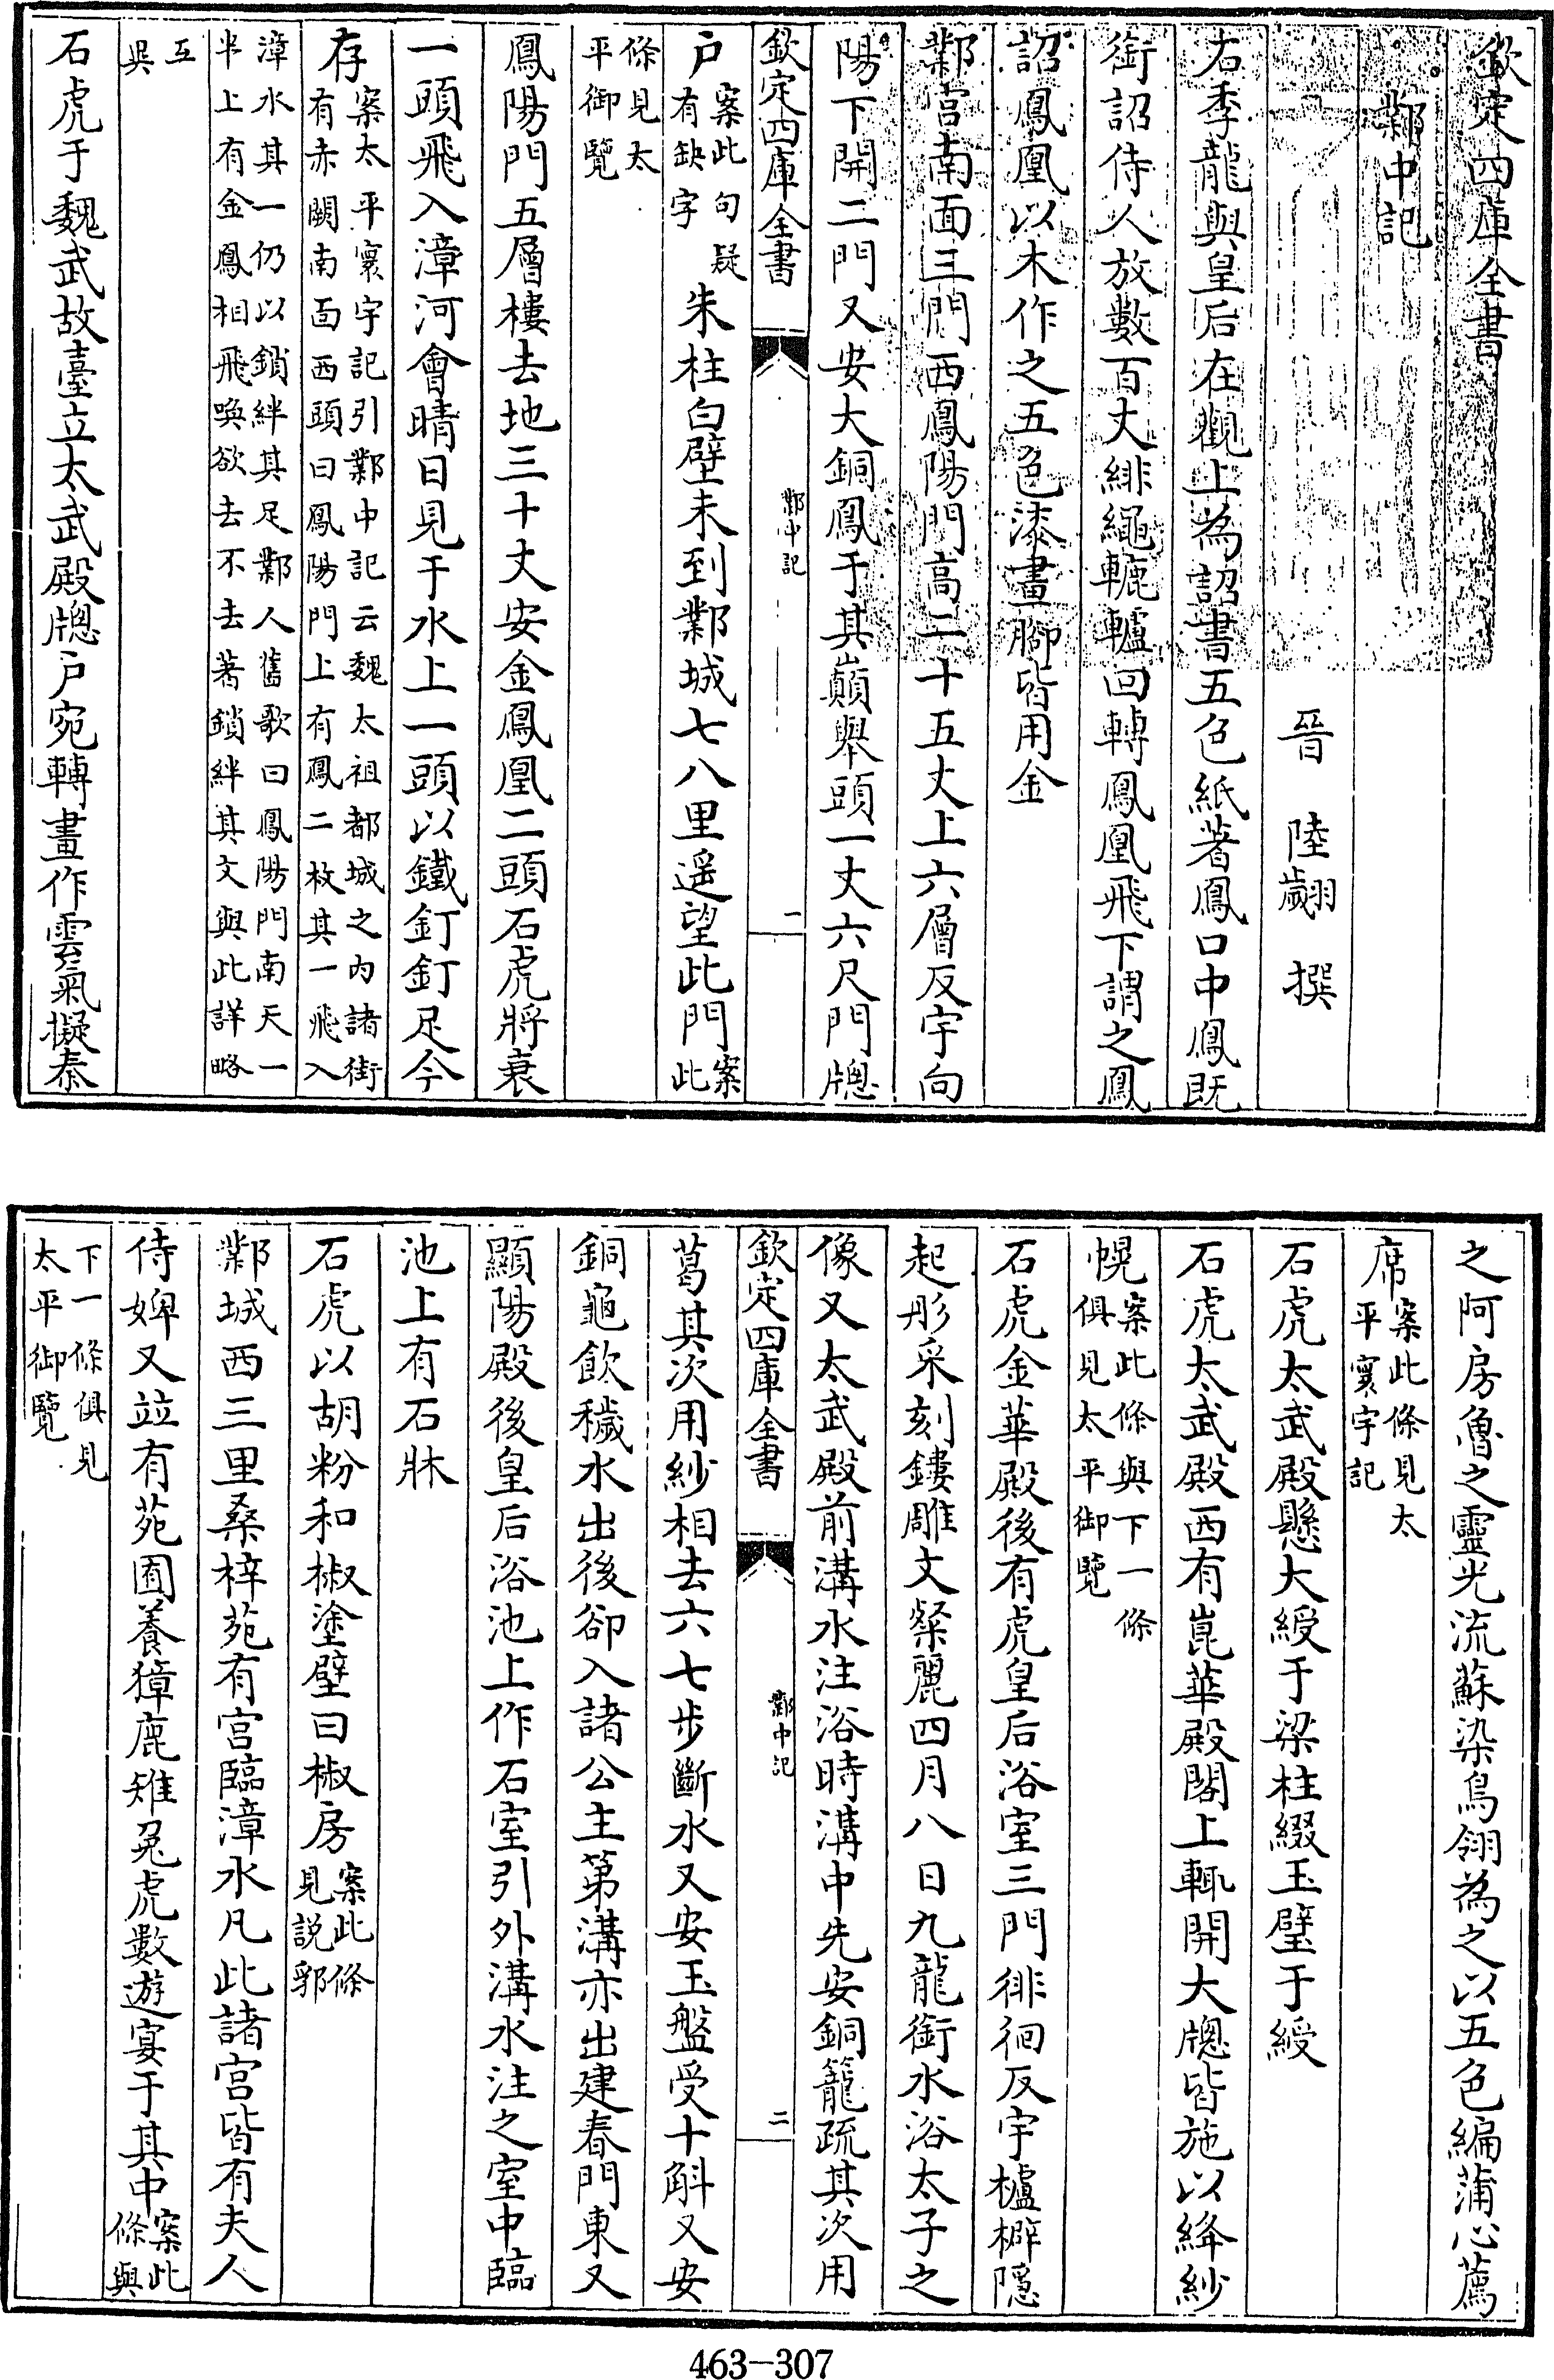 欽定四庫全書
鄴中記
晉　陸翽　撰
石季龍與皇后在觀上為詔書五色紙著鳳口中鳳既
銜詔侍人放數百丈緋繩轆轤回轉鳳凰飛下謂之鳳
詔鳳凰以木作之五色漆畫腳皆用金
鄴宮南面三門西鳳陽門高二十五丈上六層反宇向
陽下開二門又安大銅鳳于其巔舉頭一丈六尺門牕
欽定四庫全書
鄴中記
一
户案此句疑有缺字朱柱白壁未到鄴城七八里遥望此門案此
條見太平御覽
鳳陽門五層樓去地三十丈安金鳳凰二頭石虎將衰
一頭飛入漳河會晴日見于水上一頭以鐵釘釘足今
存案太平寰宇記引鄴中記云魏太祖都城之内諸街有赤闕南面西頭曰鳳陽門上有鳳二枚其一飛入
漳水其一仍以鎖絆其足鄴人舊歌曰鳳陽門南天一半上有金鳳相飛喚欲去不去著鎖絆其文與此詳略
互異
石虎于魏武故臺立太武殿牕户宛轉畫作雲氣擬秦
之阿房魯之靈光流蘇染鳥翎為之以五色編蒲心薦
席案此條見太平寰宇記
石虎太武殿懸大綬于梁柱綴玉璧于綬
石虎太武殿西有崑華殿閣上輒開大牕皆施以絳紗
幌案此條與下一條俱見太平御覽
石虎金華殿後有虎皇后浴室三門徘徊反宇櫨檘隱
起彤采刻鏤雕文粲麗四月八日九龍銜水浴太子之
像又太武殿前溝水注浴時溝中先安銅籠疏其次用
欽定四庫全書
鄴中記
二
葛其次用紗相去六七步斷水又安玉盤受十斛又安
銅龜飲穢水出後卻入諸公主第溝亦出建春門東又
顯陽殿後皇后浴池上作石室引外溝水注之室中臨
池上有石牀
石虎以胡粉和椒塗壁曰椒房案此條見説郛
鄴城西三里桑梓苑有宮臨漳水凡此諸宮皆有夫人
侍婢又竝有苑囿養獐鹿雉兔虎數遊宴于其中案此條與
下一條俱見太平御覽
463-307